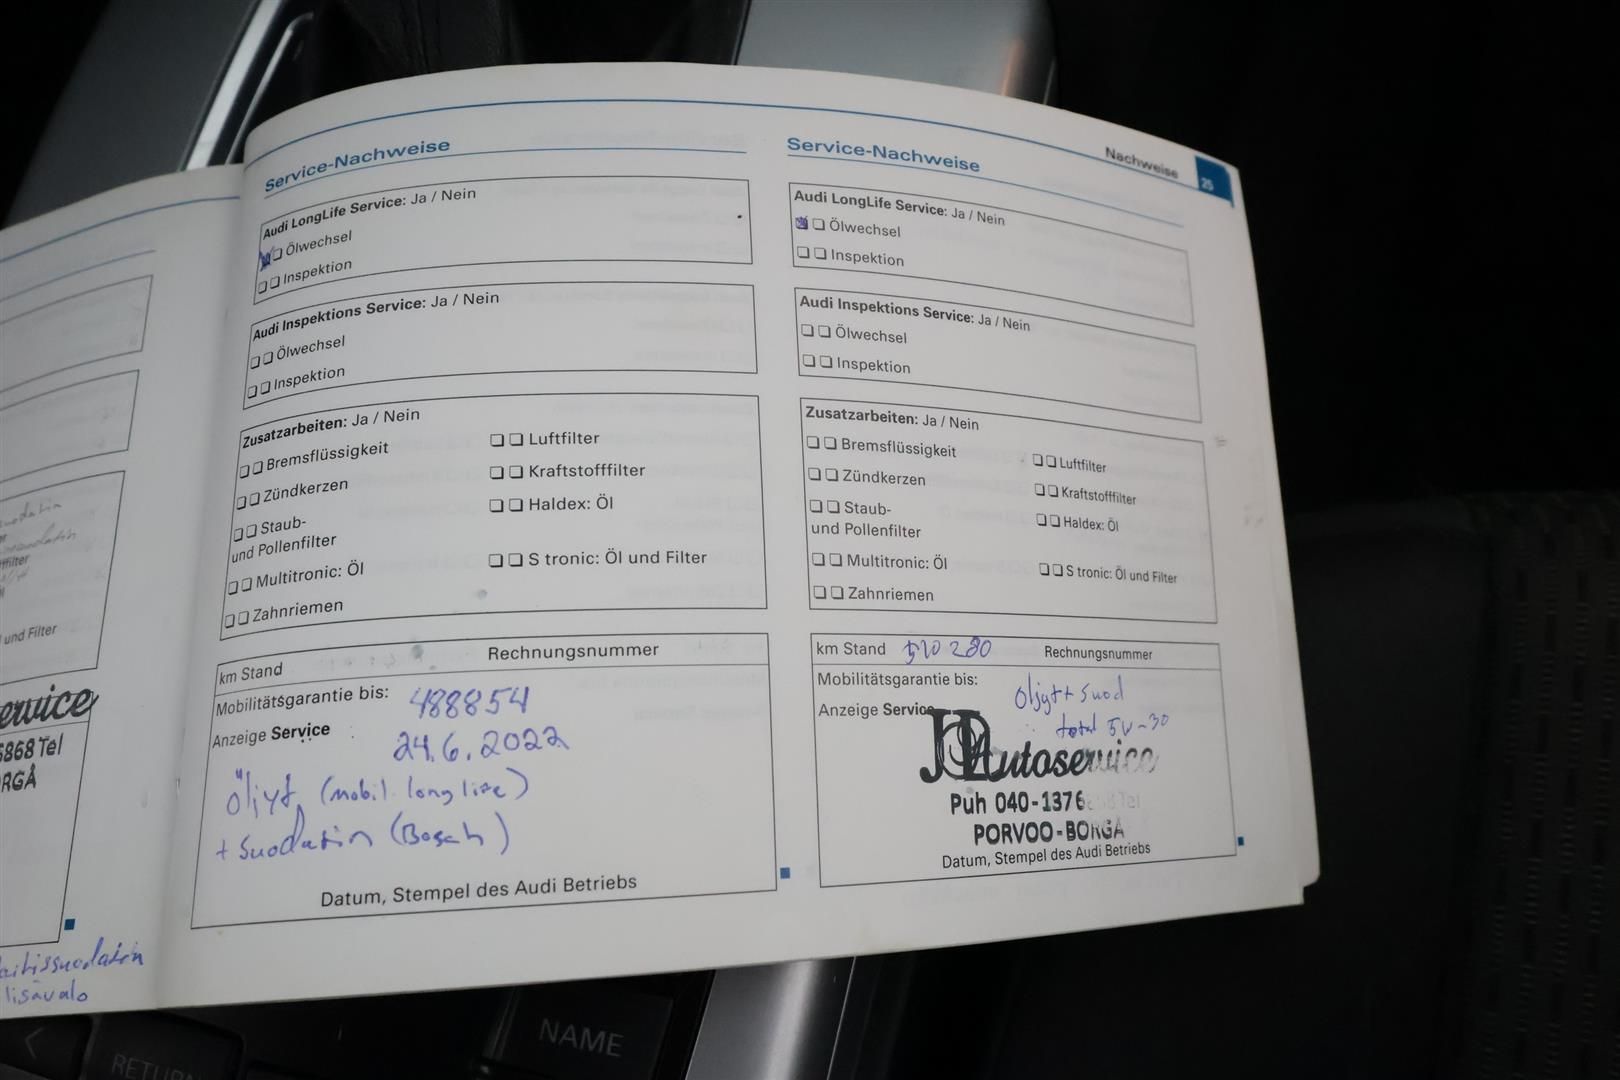 Nachweise 25
Service-Nachweise
Audi LongLife Service: Ja / Nein
Ölwechsel
Inspektion
Audi Inspektions Service: Ja / Nein
Ölwechsel
Inspektion
Zusatzarbeiten: Ja / Nein
Bremsflüssigkeit
Luftfilter
Zündkerzen
Kraftstofffilter
Staub-
und Pollenfilter
Haldex: Öl
Multitronic: Öl
S tronic: Öl und Filter
Zahnriemen
km Stand
Rechnungsnummer
Mobilitätsgarantie bis: 488854
Anzeige Service 24.6.2022
Öljyt (mobil long life)
+ Suodatin (Bosch)
Datum, Stempel des Audi Betriebs
Service-Nachweise
Audi LongLife Service: Ja / Nein
Ölwechsel
Inspektion
Audi Inspektions Service: Ja / Nein
Ölwechsel
Inspektion
Zusatzarbeiten: Ja / Nein
Bremsflüssigkeit
Luftfilter
Zündkerzen
Kraftstofffilter
Staub-
und Pollenfilter
Haldex: Öl
Multitronic: Öl
S tronic: Öl und Filter
Zahnriemen
km Stand 510280 Rechnungsnummer
Mobilitätsgarantie bis:
Öljyt + Suod
Anzeige Service
total 5W-30
Autoservice
Puh 040-1376868 Tel
PORVOO-BORGÅ
Datum, Stempel des Audi Betriebs
und Filter
ervice
6868 Tel
RGÅ
lisävalo
NAME
RETURN